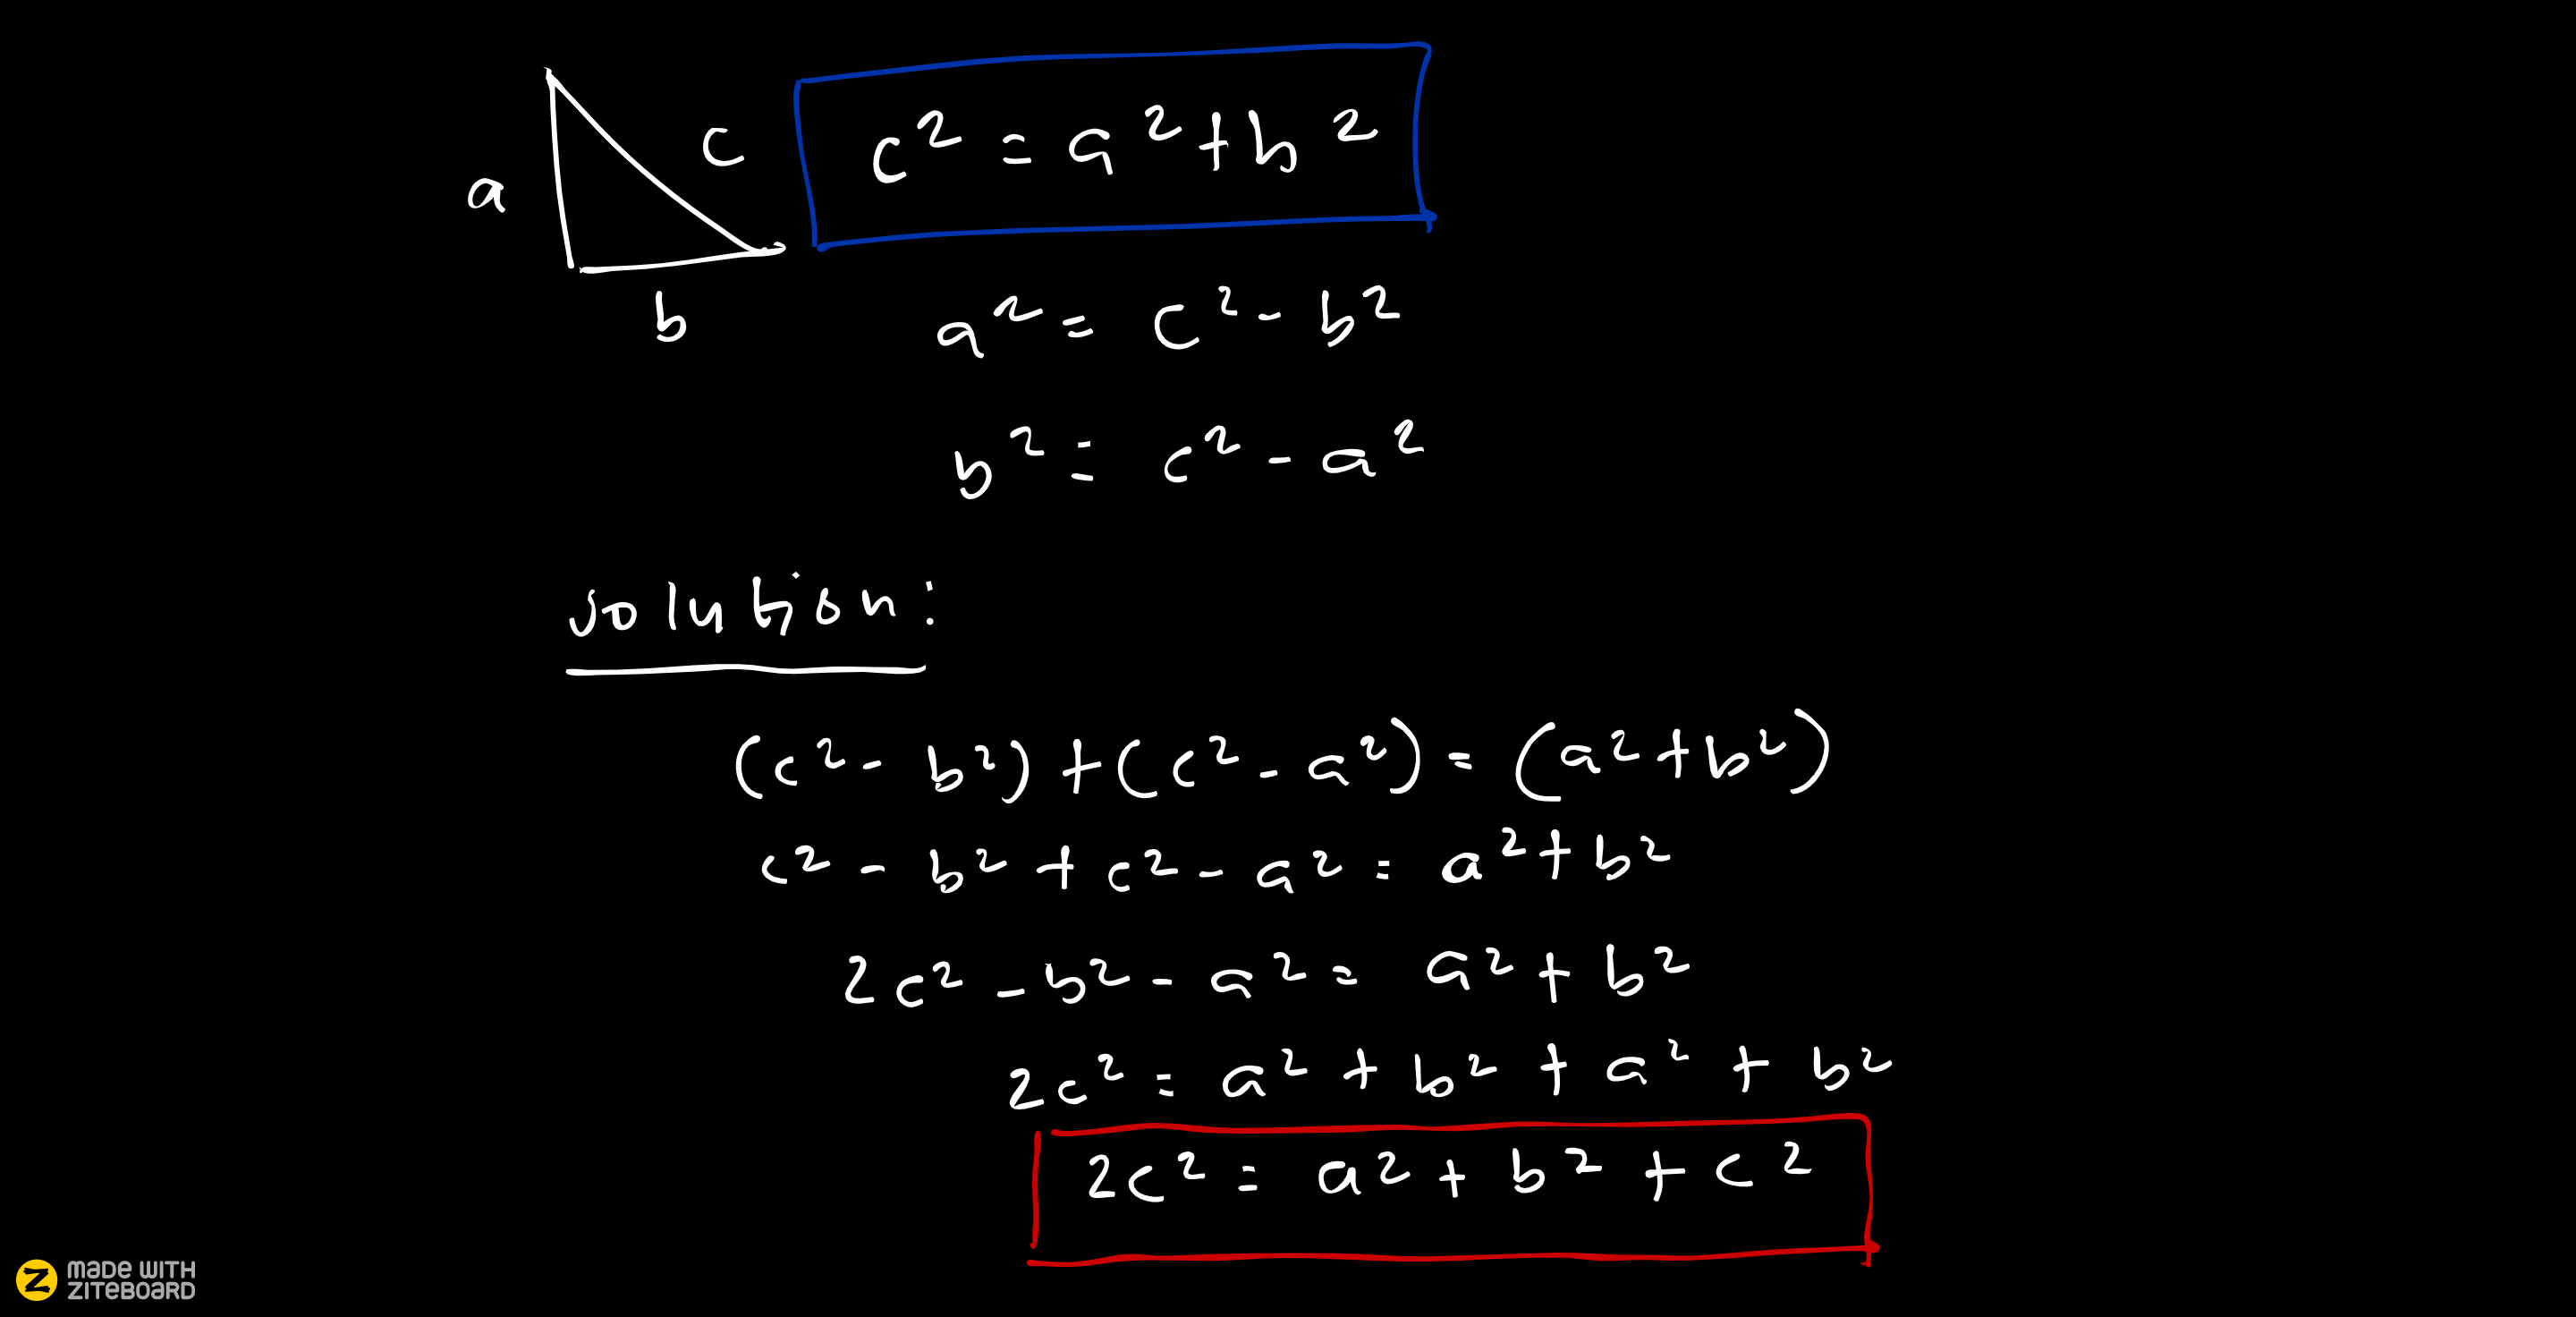 a
c
b
c² = a² + b²
a² = c² - b²
b² = c² - a²
solution:
(c² - b²) + (c² - a²) = (a² + b²)
c² - b² + c² - a² = a² + b²
2c² - b² - a² = a² + b²
2c² = a² + b² + a² + b²
2c² = a² + b² + c²
Z MADE WITH
ZITEBOARD